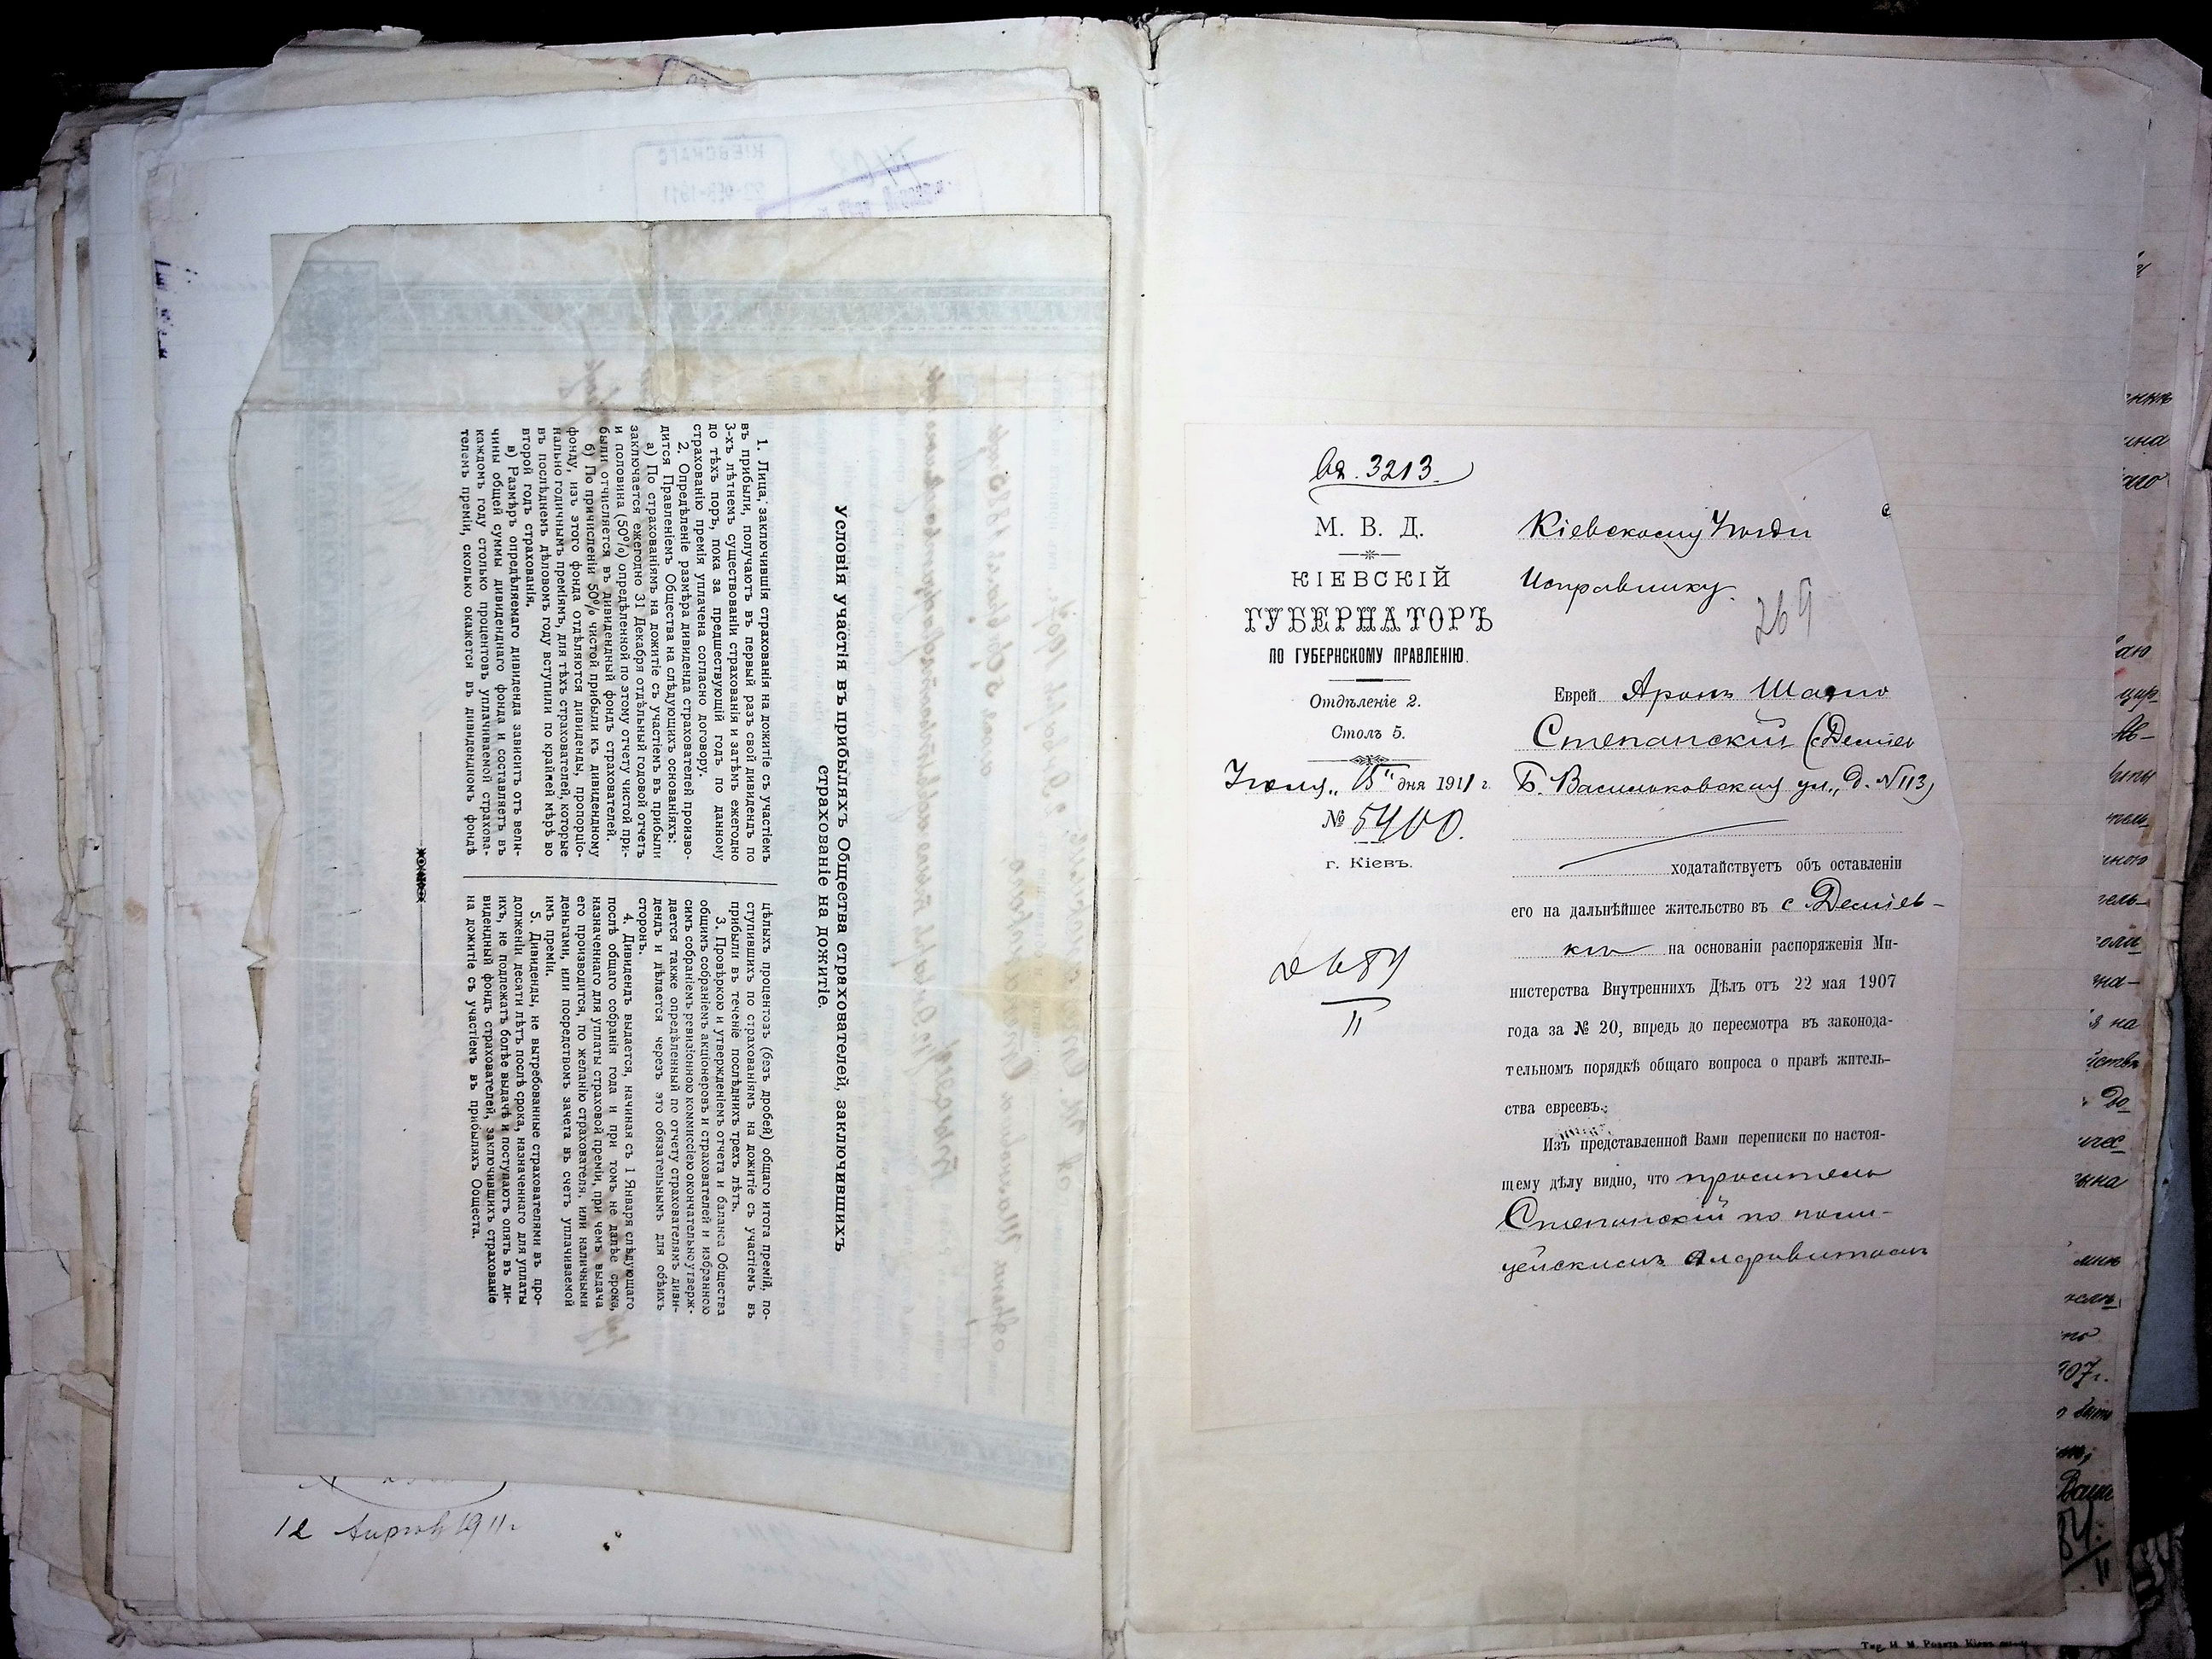 Условія участія въ прибыляхъ Общества страхователей, заключившихъ
страхованіе на дожитіе.
1. Лица, заключившія страхованія на дожитіе съ участіемъ
въ прибыли, получаютъ въ первый разъ свой дивидендъ по
3-хъ лѣтнемъ существованіи страхованія и затѣмъ ежегодно
до тѣхъ поръ, пока за предшествующій годъ по данному
страхованію премія уплачена согласно договору.
2. Опредѣленіе размѣра дивиденда страхователей произво-
дится Правленіемъ Общества на слѣдующихъ основаніяхъ:
а) По страхованіямъ на дожитіе съ участіемъ въ прибыли
заключается ежегодно 31 Декабря отдѣльный годовой отчетъ
и половина (50%) опредѣленной по этому отчету чистой при-
были отчисляется въ дивидендный фондъ страхователей.
б) По причисленіи 50% чистой прибыли къ дивидендному
фонду, изъ этого фонда отдѣляются дивиденды, пропорціо-
нально годичнымъ преміямъ, для тѣхъ страхователей, которые
въ послѣднемъ дѣловомъ году вступили по крайней мѣрѣ во
второй годъ страхованія.
в) Размѣръ опредѣляемаго дивиденда зависитъ отъ вели-
чины общей суммы дивиденднаго фонда и составляетъ въ
каждомъ году столько процентовъ уплачиваемой страхова-
телемъ преміи, сколько окажется въ дивидендномъ фондѣ
цѣлыхъ процентовъ (безъ дробей) общаго итога премій, по-
ступившихъ по страхованіямъ на дожитіе съ участіемъ въ
прибыли въ теченіе послѣднихъ трехъ лѣтъ.
3. Провѣркою и утвержденіемъ отчета и баланса Общества
общимъ собраніемъ акціонеровъ и страхователей и избранною
симъ собраніемъ ревизіонною коммиссіею окончательно утверж-
дается также опредѣленный по отчету страхователямъ диви-
дендъ и дѣлается черезъ это обязательнымъ для обѣихъ
сторонъ.
4. Дивидендъ выдается, начиная съ 1 Января слѣдующаго
послѣ общаго собранія года и при томъ не далѣе срока,
назначеннаго для уплаты страховой преміи, при чемъ выдача
его производится, по желанію страхователя, или наличными
деньгами, или посредствомъ зачета въ счетъ уплачиваемой
имъ преміи.
5. Дивиденды, не вытребованные страхователями въ про-
долженіи десяти лѣтъ послѣ срока, назначеннаго для уплаты
ихъ, не подлежатъ болѣе выдачѣ и поступаютъ опять въ ди-
видендный фондъ страхователей, заключившихъ страхованіе
на дожитіе съ участіемъ въ прибыляхъ Общества.
12 Апрѣля 1911 г
вх. 3213.
М. В. Д.
КІЕВСКІЙ
ГУБЕРНАТОРЪ
ПО ГУБЕРНСКОМУ ПРАВЛЕНІЮ.
Отдѣленіе 2.
Столъ 5.
Іюля „15" дня 1911 г.
№ 5400.
г. Кіевъ.
II
Кіевскому Уѣздн
Исправнику.
269
Еврей Аронъ
Степанскій (с Деміев
Б. Васильковская ул., д. №113)
ходатайствуетъ объ оставленіи
его на дальнѣйшее жительство въ с Деміев-
кѣ на основаніи распоряженія Ми-
нистерства Внутреннихъ Дѣлъ отъ 22 мая 1907
года за № 20, впредь до пересмотра въ законода-
тельномъ порядкѣ общаго вопроса о правѣ житель-
ства евреевъ.
Изъ представленной Вами переписки по настоя-
щему дѣлу видно, что проситель
Степанскій по поли-
цейскимъ алфавитамъ